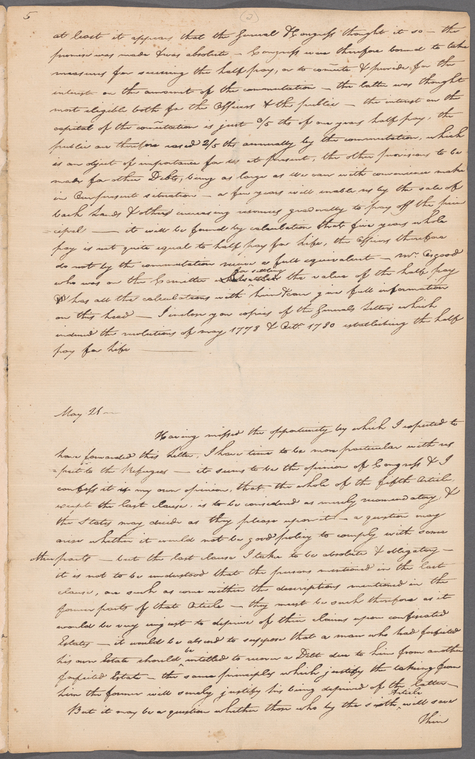 5
at least it appears that the General & Congress thought it so — the
provision was made & was absolute — Congress were therefore bound to take
measures for securing the half pay, or to commute & provide for the
interest on the amount of the commutation — the latter was thought
most eligible both for the Officers & the public — the interest on the
capital of the commutation is just 3/5 ths of one years half pay, the
public are therefore saved 2/5 ths annually by the commutation, which
is an object of importance for us at present, the other provisions to be
made for other Debts, being as large as we can with convenience make
in our present situation — a few years will enable us by the sale of
back lands & other increasing revenues gradually to pay off the prin
cipal — it will be found by calculation that five years whole
pay is not quite equal to half pay for life, the Officers therefore
do not by the commutation receive a full equivalent — Mr. Osgood
who was on the Committee for settling the value of the half pay
& has all the calculations with him & can give full information
on this head — I inclose you copies of the Generals Letters which
induced the resolutions of May 1778 & Octr. 1780 establishing the half
pay for life
May 21 —
Having missed the opportunity by which I expected to
have forwarded this Letter, I have time to be more particular with re
spect to the Refugees — it seems to be the opinion of Congress & I
confess it is my own opinion, that the whole of the fifth Article
except the last clause, is to be considered as merely recommendatory, &
the States may decide as they please upon it — a question may
arise whether it would not be good policy to comply with some
other parts — but the last clause I take to be absolute & obligatory —
it is not to be understood that the persons mentioned in the last
clause, are such as come within the descriptions mentioned in the
former parts of that Article — they must be such therefore as it
would be very unjust to deprive of their claims upon confiscated
Estates — it would be absurd to suppose that a man who had forfeited
his own Estate should be intitled to recover a Debt due to him from another
forfeited Estate — the same principles which justify the taking from
him the former will surely justify his being deprived of the latter —
But it may be a question whether those who by the sixth Article will save
their